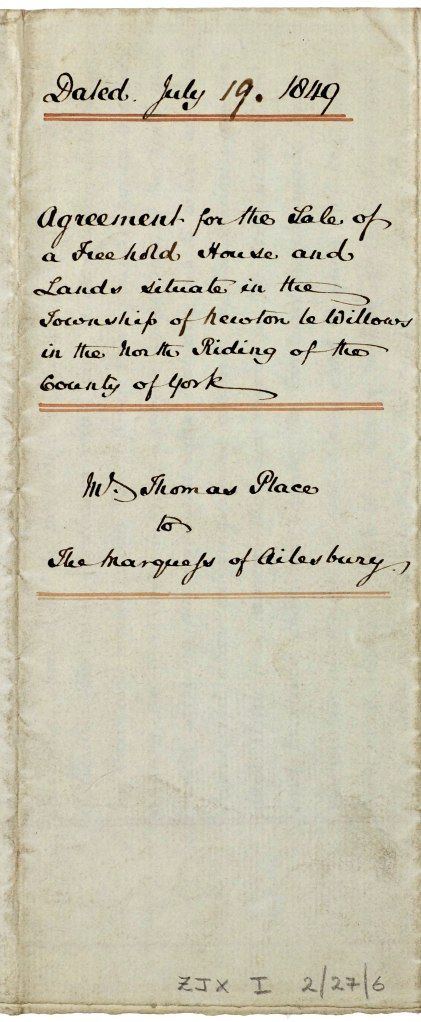 Dated July 19. 1849
Agreement for the Sale of
a Freehold House and
Lands situate in the
Township of Newton le Willows
in the North Riding of the
County of York
Mr. Thomas Place
to
The Marqueſs of Ailesbury.
ZJX I 2/27/6